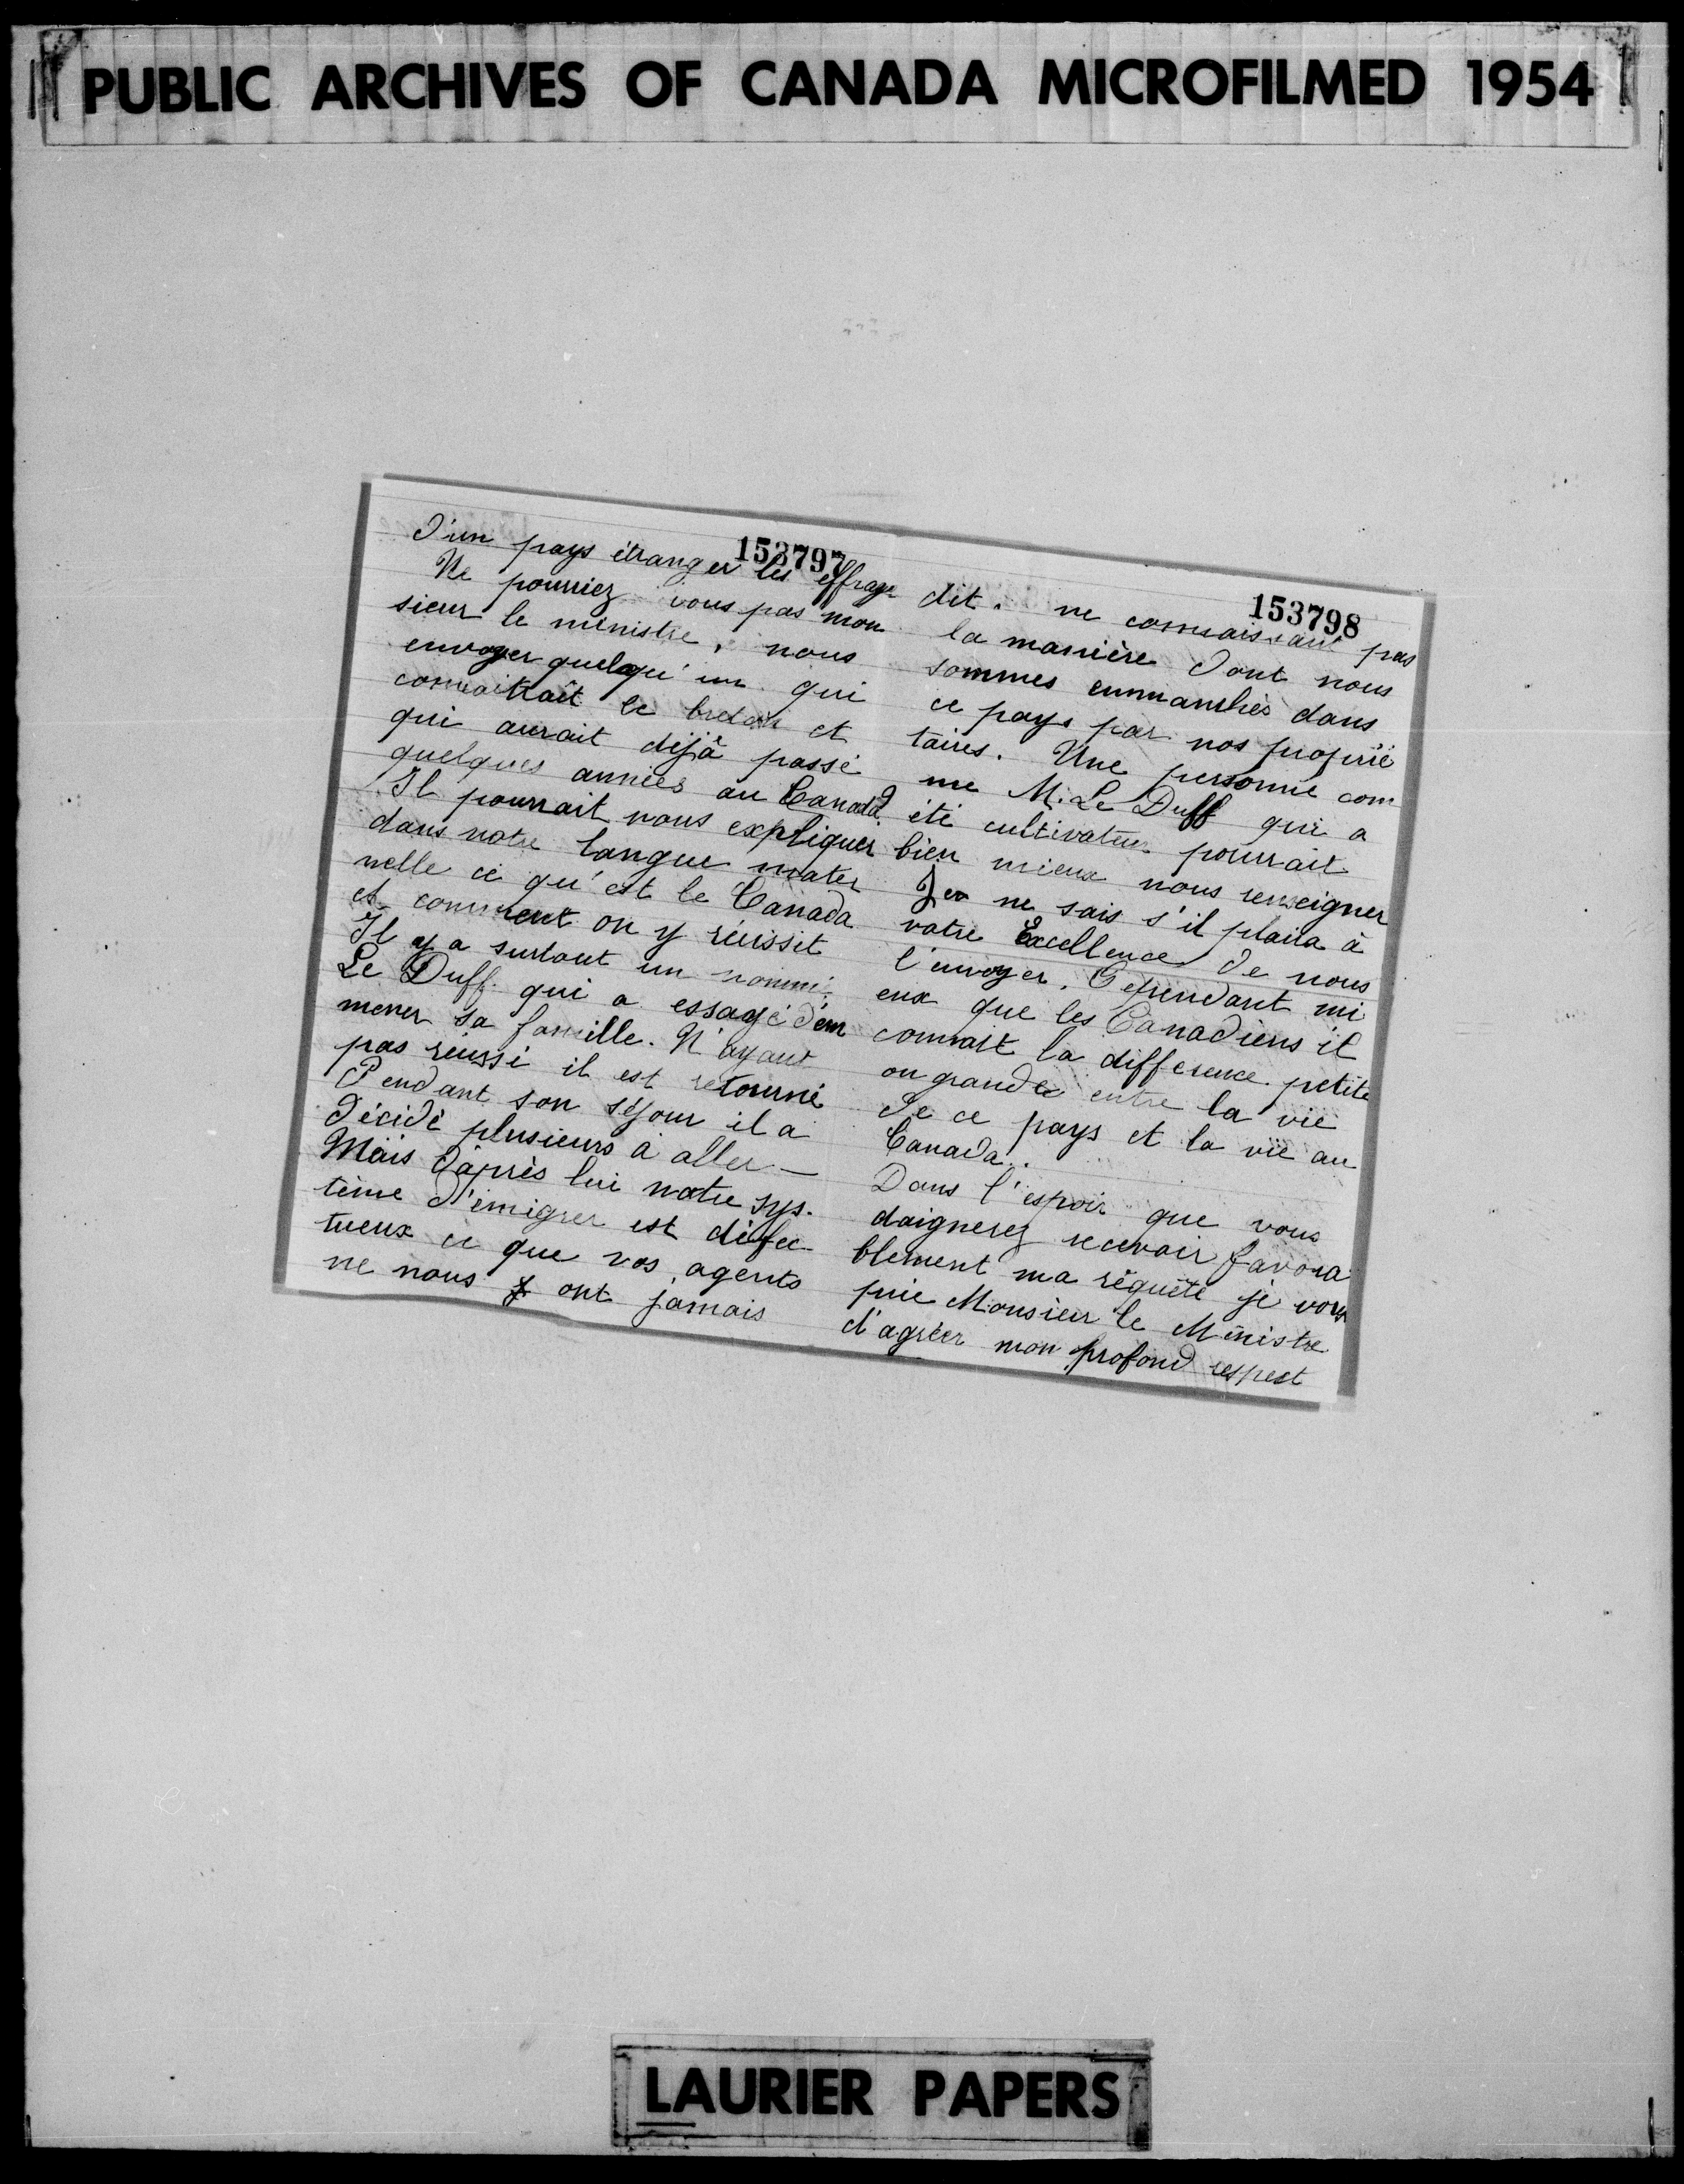 PUBLIC ARCHIVES OF CANADA MICROFILMED 1954
153797
d'un pays étranger les effraye
Ne pourriez vous pas mon
sieur le ministre, nous
envoyer quelqu'un qui
connaitrait le breton et
qui aurait déjà passé
quelques années au Canada?
Il pourrait nous expliquer
dans notre langue mater
nelle ce qu'est le Canada
et comment on y réussit
Il y a surtout un nommé
Le Duff qui a essayé d'em
mener sa famille. N'ayant
pas réussi il est retourné
Pendant son séjour il a
décidé plusieurs à aller –
Mais d'après lui notre sys-
tème d'émigrer est défec-
tueux ce que vos agents
ne nous ont jamais
153798
dit. ne connaissant pas
la manière dont nous
sommes enmanchés dans
ce pays par nos proprié
taires. Une personne com
me M. Le Duff qui a
été cultivateur pourrait
bien mieux nous renseigner
Je ne sais s'il plaira à
votre Excellence de nous
l'envoyer. Cependant mi
eux que les Canadiens il
connait la difference petite
ou grande entre la vie
de ce pays et la vie au
Canada.
Dans l'espoir que vous
daignerez recevoir favora
blement ma réquête je vous
prie Monsieur le Ministre
d'agréer mon profond respect
LAURIER PAPERS